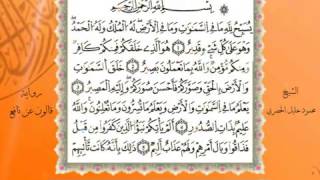 بِسْمِ اللَّهِ الرَّحْمَٰنِ الرَّحِيمِ
يُسَبِّحُ لِلَّهِ مَا فِي السَّمَٰوَٰتِ وَمَا فِي الْأَرْضِ لَهُ الْمُلْكُ وَلَهُ الْحَمْدُ
وَهُوَ عَلَىٰ كُلِّ شَيْءٍ قَدِيرٌ ١ هُوَ الَّذِي خَلَقَكُمْ فَمِنكُمْ كَافِرٌ
وَمِنكُم مُّؤْمِنٌ وَاللَّهُ بِمَا تَعْمَلُونَ بَصِيرٌ ٢ خَلَقَ السَّمَٰوَٰتِ
وَالْأَرْضَ بِالْحَقِّ وَصَوَّرَكُمْ فَأَحْسَنَ صُوَرَكُمْ وَإِلَيْهِ الْمَصِيرُ ٣
يَعْلَمُ مَا فِي السَّمَٰوَٰتِ وَالْأَرْضِ وَيَعْلَمُ مَا تُسِرُّونَ وَمَا تُعْلِنُونَ وَاللَّهُ
عَلِيمٌ بِذَاتِ الصُّدُورِ ٤ أَلَمْ يَأْتِكُمْ نَبَؤُا الَّذِينَ كَفَرُوا مِن قَبْلُ
فَذَاقُوا وَبَالَ أَمْرِهِمْ وَلَهُمْ عَذَابٌ أَلِيمٌ ٥ ذَٰلِكَ بِأَنَّهُ كَانَت تَّأْتِيهِمْ
الشيخ
محمود خليل الحصري
رواية
قالون عن نافع